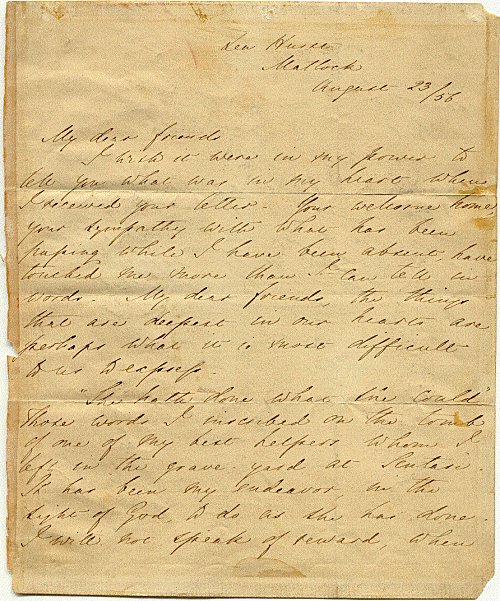 Lea Hurst
Matlock
August 23/56
My dear friends
I wish it were in my power to
tell you what was in my heart when
I received your letter. Your welcome home,
your sympathy with what has been
passing while I have been absent, have
touched me more than I can tell in
words. My dear friends, the things
that are deepest in our hearts are
perhaps what it is most difficult
to us to express.
"She hath done what she could"
Those words I inscribed on the tomb
of one of my best helpers whom I
left in the grave yard at Scutari.
It has been my endeavor, in the
sight of God, to do as she has done.
I will not speak of reward, when